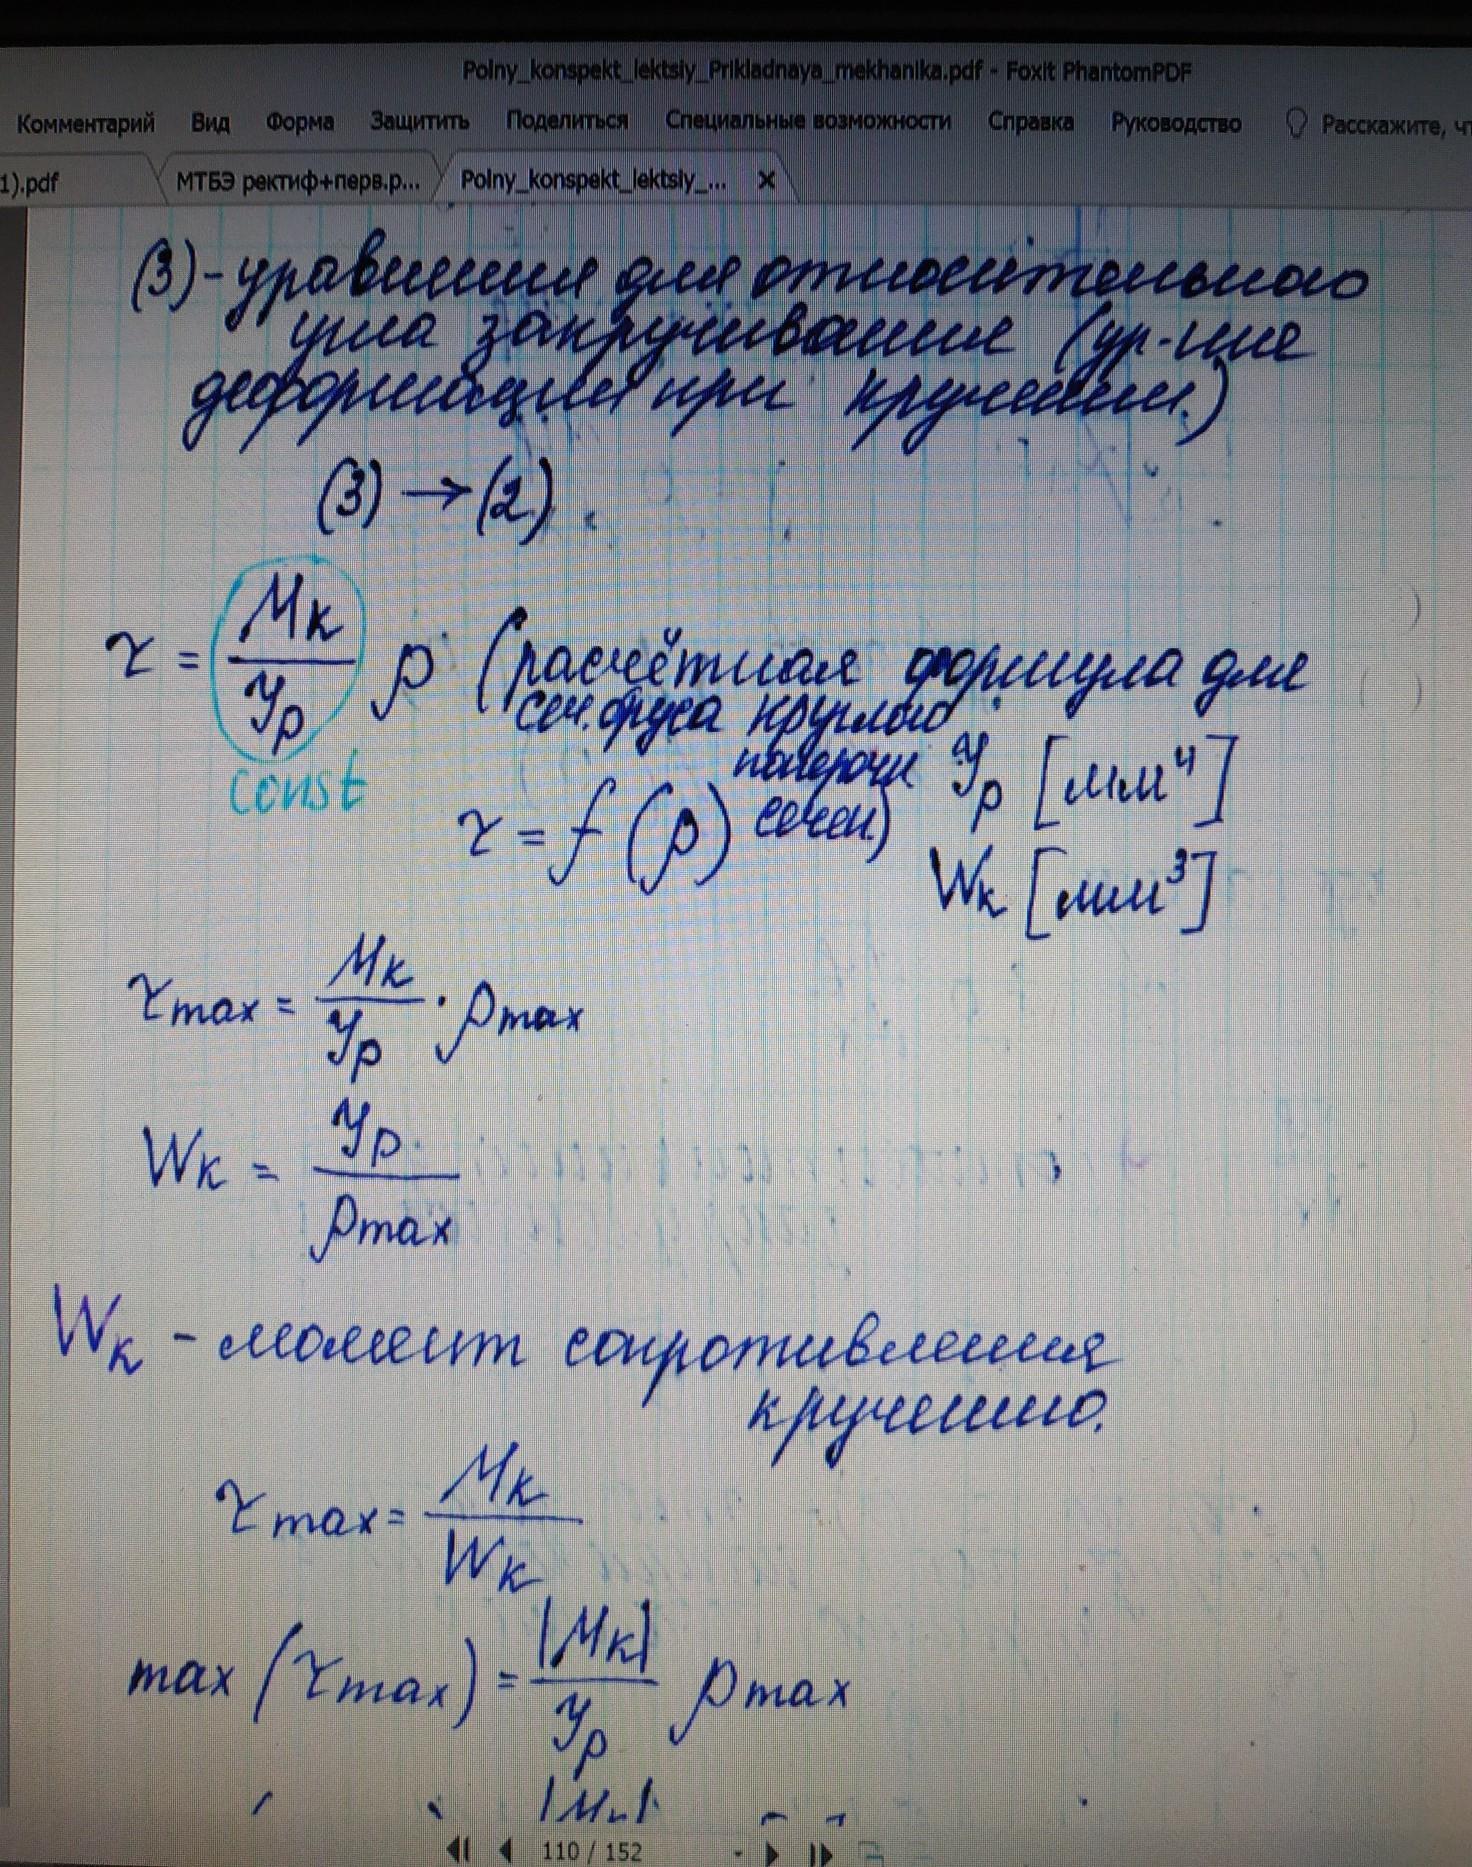 Polny_konspekt_lektsiy_Prikladnaya_mekhanika.pdf - Foxit PhantomPDF
Комментарий Вид Форма Защитить Поделиться Специальные возможности Справка Руководство Расскажите, чт
1).pdf МТБЭ ректиф+перв.р... Polny_konspekt_lektsiy_... ×
(3) - уравнения для относительного
угла закручивание (ур-ние
деформации при кручении.)
(3) → (2).
τ = Mк / Jp ρ (расчётная формула для
сеч. бруса круглого
const
попереч Jp [мм⁴]
τ = f(ρ) сечен) Wк [мм³]
τmax = Mк / Jp · ρmax
Wк = Jp / ρmax
Wк - момент сопротивления
кручению.
τmax = Mк / Wк
max (τmax) = |Mк| / Jp ρmax
110 / 152